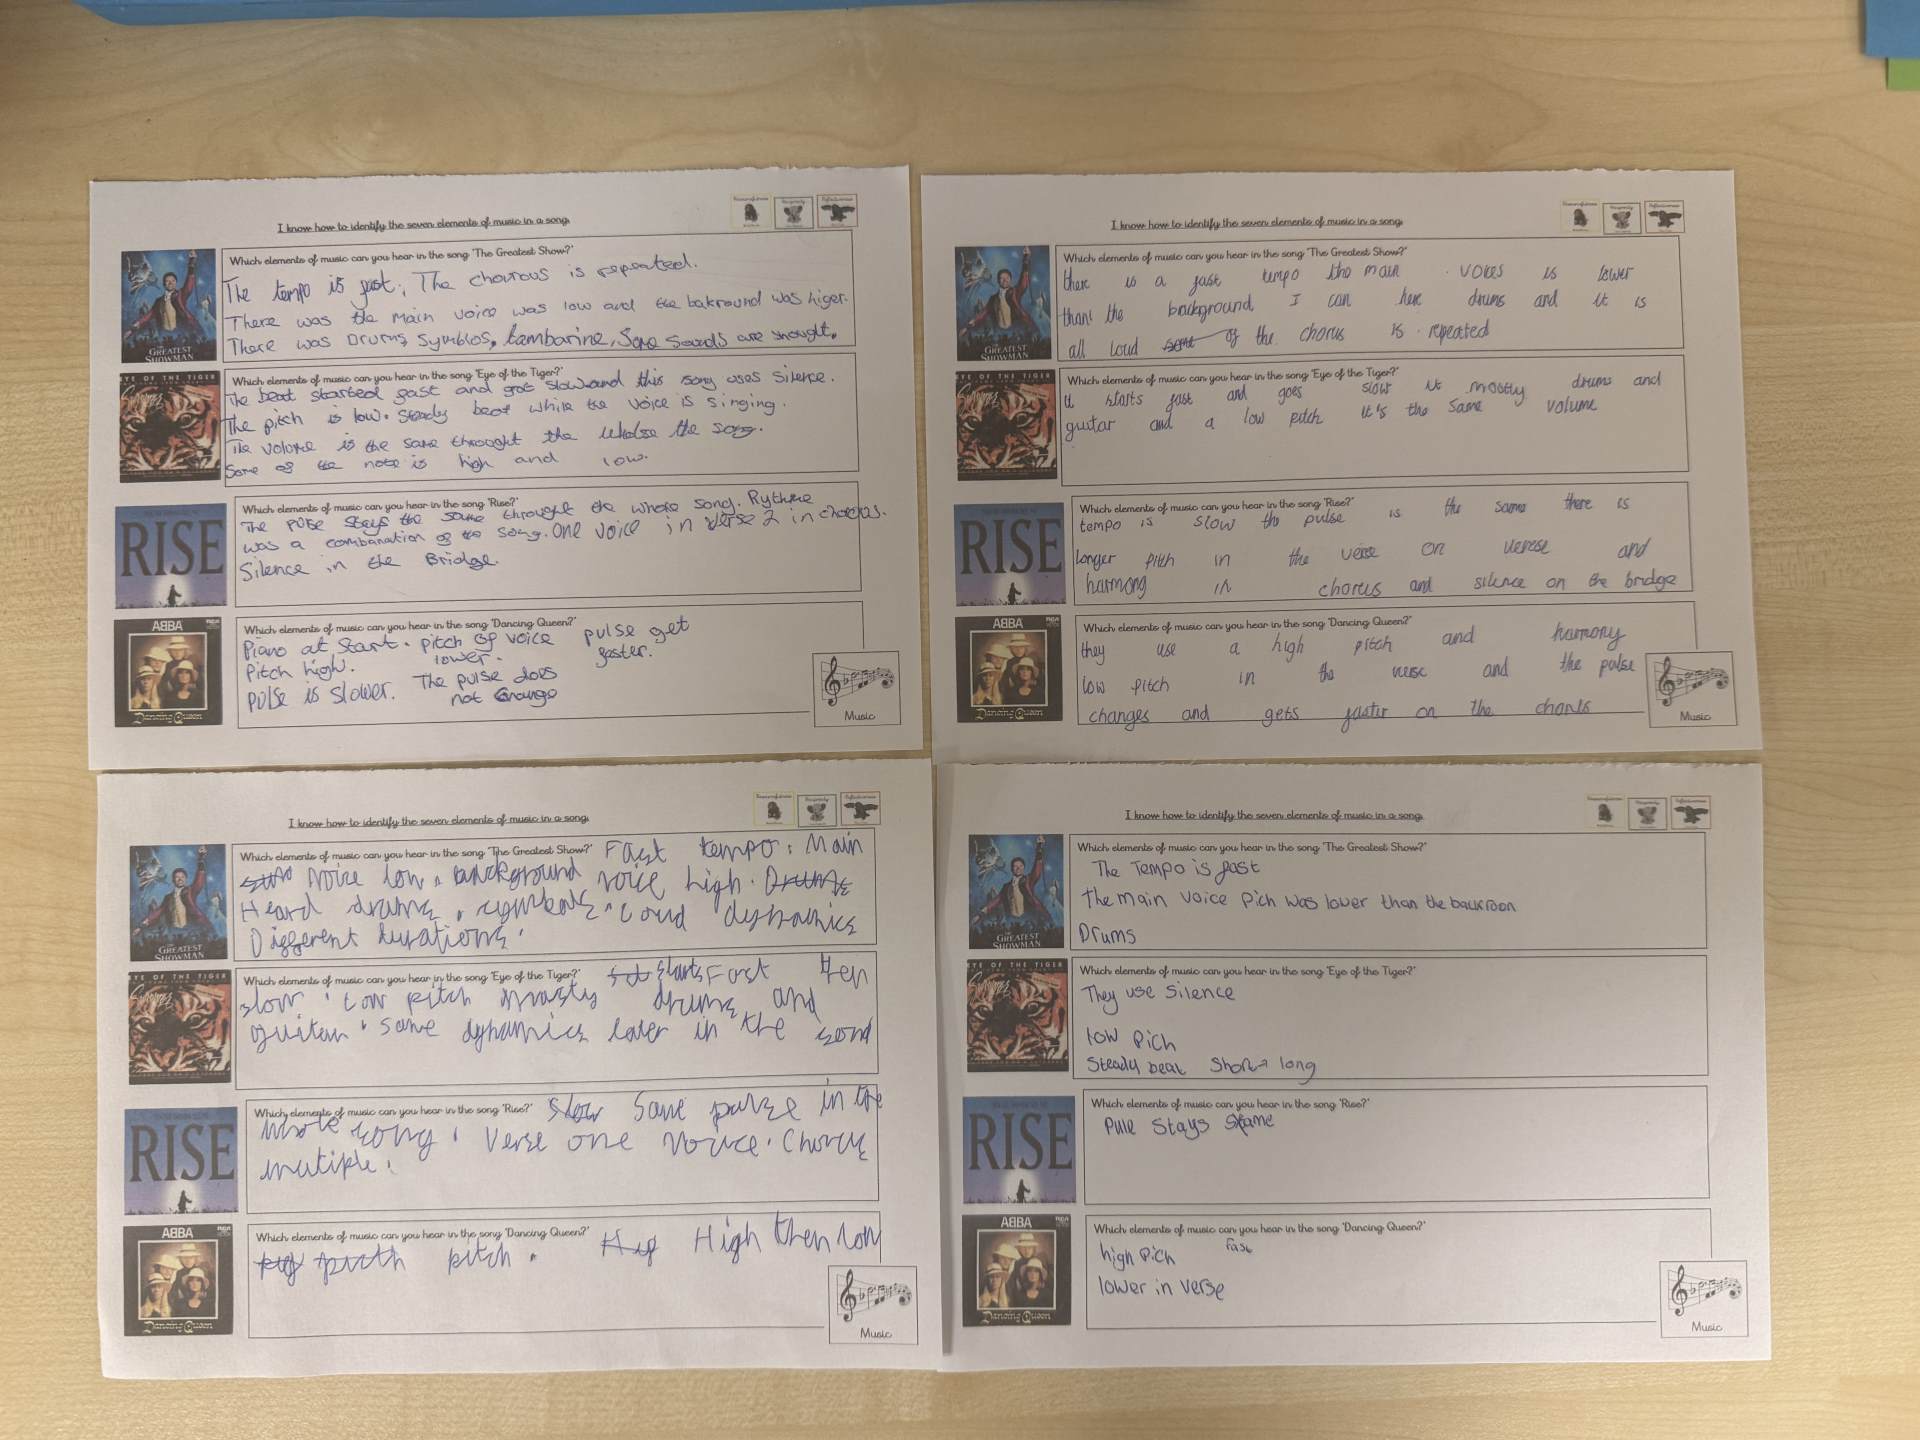 I know how to identify the seven elements of music in a song.
THE GREATEST SHOWMAN
Which elements of music can you hear in the song 'The Greatest Show?'
The tempo is fast. The chourous is repeated.
There was the main voice was low and the bakround was higer.
There was Drums, symblos, tambarine, Some sounds are
EYE OF THE TIGER
Survivor
Which elements of music can you hear in the song 'Eye of the Tiger?'
The beat started fast and gos slow and this song uses silence.
The pitch is low. Steady beat while the voice is singing.
The volume is the same throught the the song.
Some of the note is high and low.
RISE
Which elements of music can you hear in the song 'Rise?'
The pulse stays the same throught the whole song. Rythme
was a combanation of the song. One voice in verse 2 in
Silence in the Bridge.
ABBA
Dancing Queen
Which elements of music can you hear in the song 'Dancing Queen?'
Piano at start. pitch of voice pulse get
Pitch high. lower. faster.
pulse is slower. The pulse does
not change
Music
I know how to identify the seven elements of music in a song.
THE GREATEST SHOWMAN
Which elements of music can you hear in the song 'The Greatest Show?'
there is a fast tempo the main voices is lower
thant the background, I can here drums and it is
all loud some of the chorus is repeated
EYE OF THE TIGER
Survivor
Which elements of music can you hear in the song 'Eye of the Tiger?'
it starts fast and goes slow it mostly drums and
guitar and a low pitch it's the same volume
RISE
Which elements of music can you hear in the song 'Rise?'
tempo is slow the pulse is the same there is
longer pitch in the verse on and
harmong in chorus and silence on the bridge
ABBA
Dancing Queen
Which elements of music can you hear in the song 'Dancing Queen?'
they use a high pitch and harmony
low pitch in the verse and the pulse
changes and gets faster on the
Music
I know how to identify the seven elements of music in a song.
THE GREATEST SHOWMAN
Which elements of music can you hear in the song 'The Greatest Show?' Fast tempo. Main
voice low. background voice high. Drums
Heard drums, Loud dynamics
Different durations.
EYE OF THE TIGER
Survivor
Which elements of music can you hear in the song 'Eye of the Tiger?' starts Fast then
slow. Low pitch drums and
guitar. same dynamics later in the
RISE
Which elements of music can you hear in the song 'Rise?' slow Same pulse in the
whole song. Verse one voice. Chorus
multiple.
ABBA
Dancing Queen
Which elements of music can you hear in the song 'Dancing Queen?'
pitch. High then low
Music
I know how to identify the seven elements of music in a song.
THE GREATEST SHOWMAN
Which elements of music can you hear in the song 'The Greatest Show?'
The Tempo is fast
the main voice pich was lower than the
Drums
EYE OF THE TIGER
Survivor
Which elements of music can you hear in the song 'Eye of the Tiger?'
They use silence
low pich
Steady beat Short → long
RISE
Which elements of music can you hear in the song 'Rise?'
Stays same
ABBA
Dancing Queen
Which elements of music can you hear in the song 'Dancing Queen?'
high pich fast
lower in verse
Music